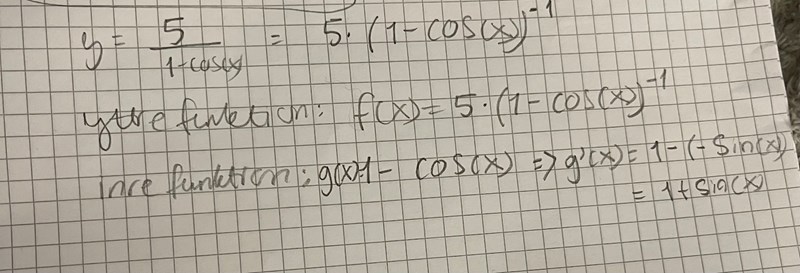 y = 5/(1-cos(x)) = 5·(1-cos(x))^-1
yttre funktion: f(x) = 5·(1-cos(x))^-1
inre funktion: g(x)=1- cos(x) => g'(x) = 1-(-sin(x))
= 1+sin(x)